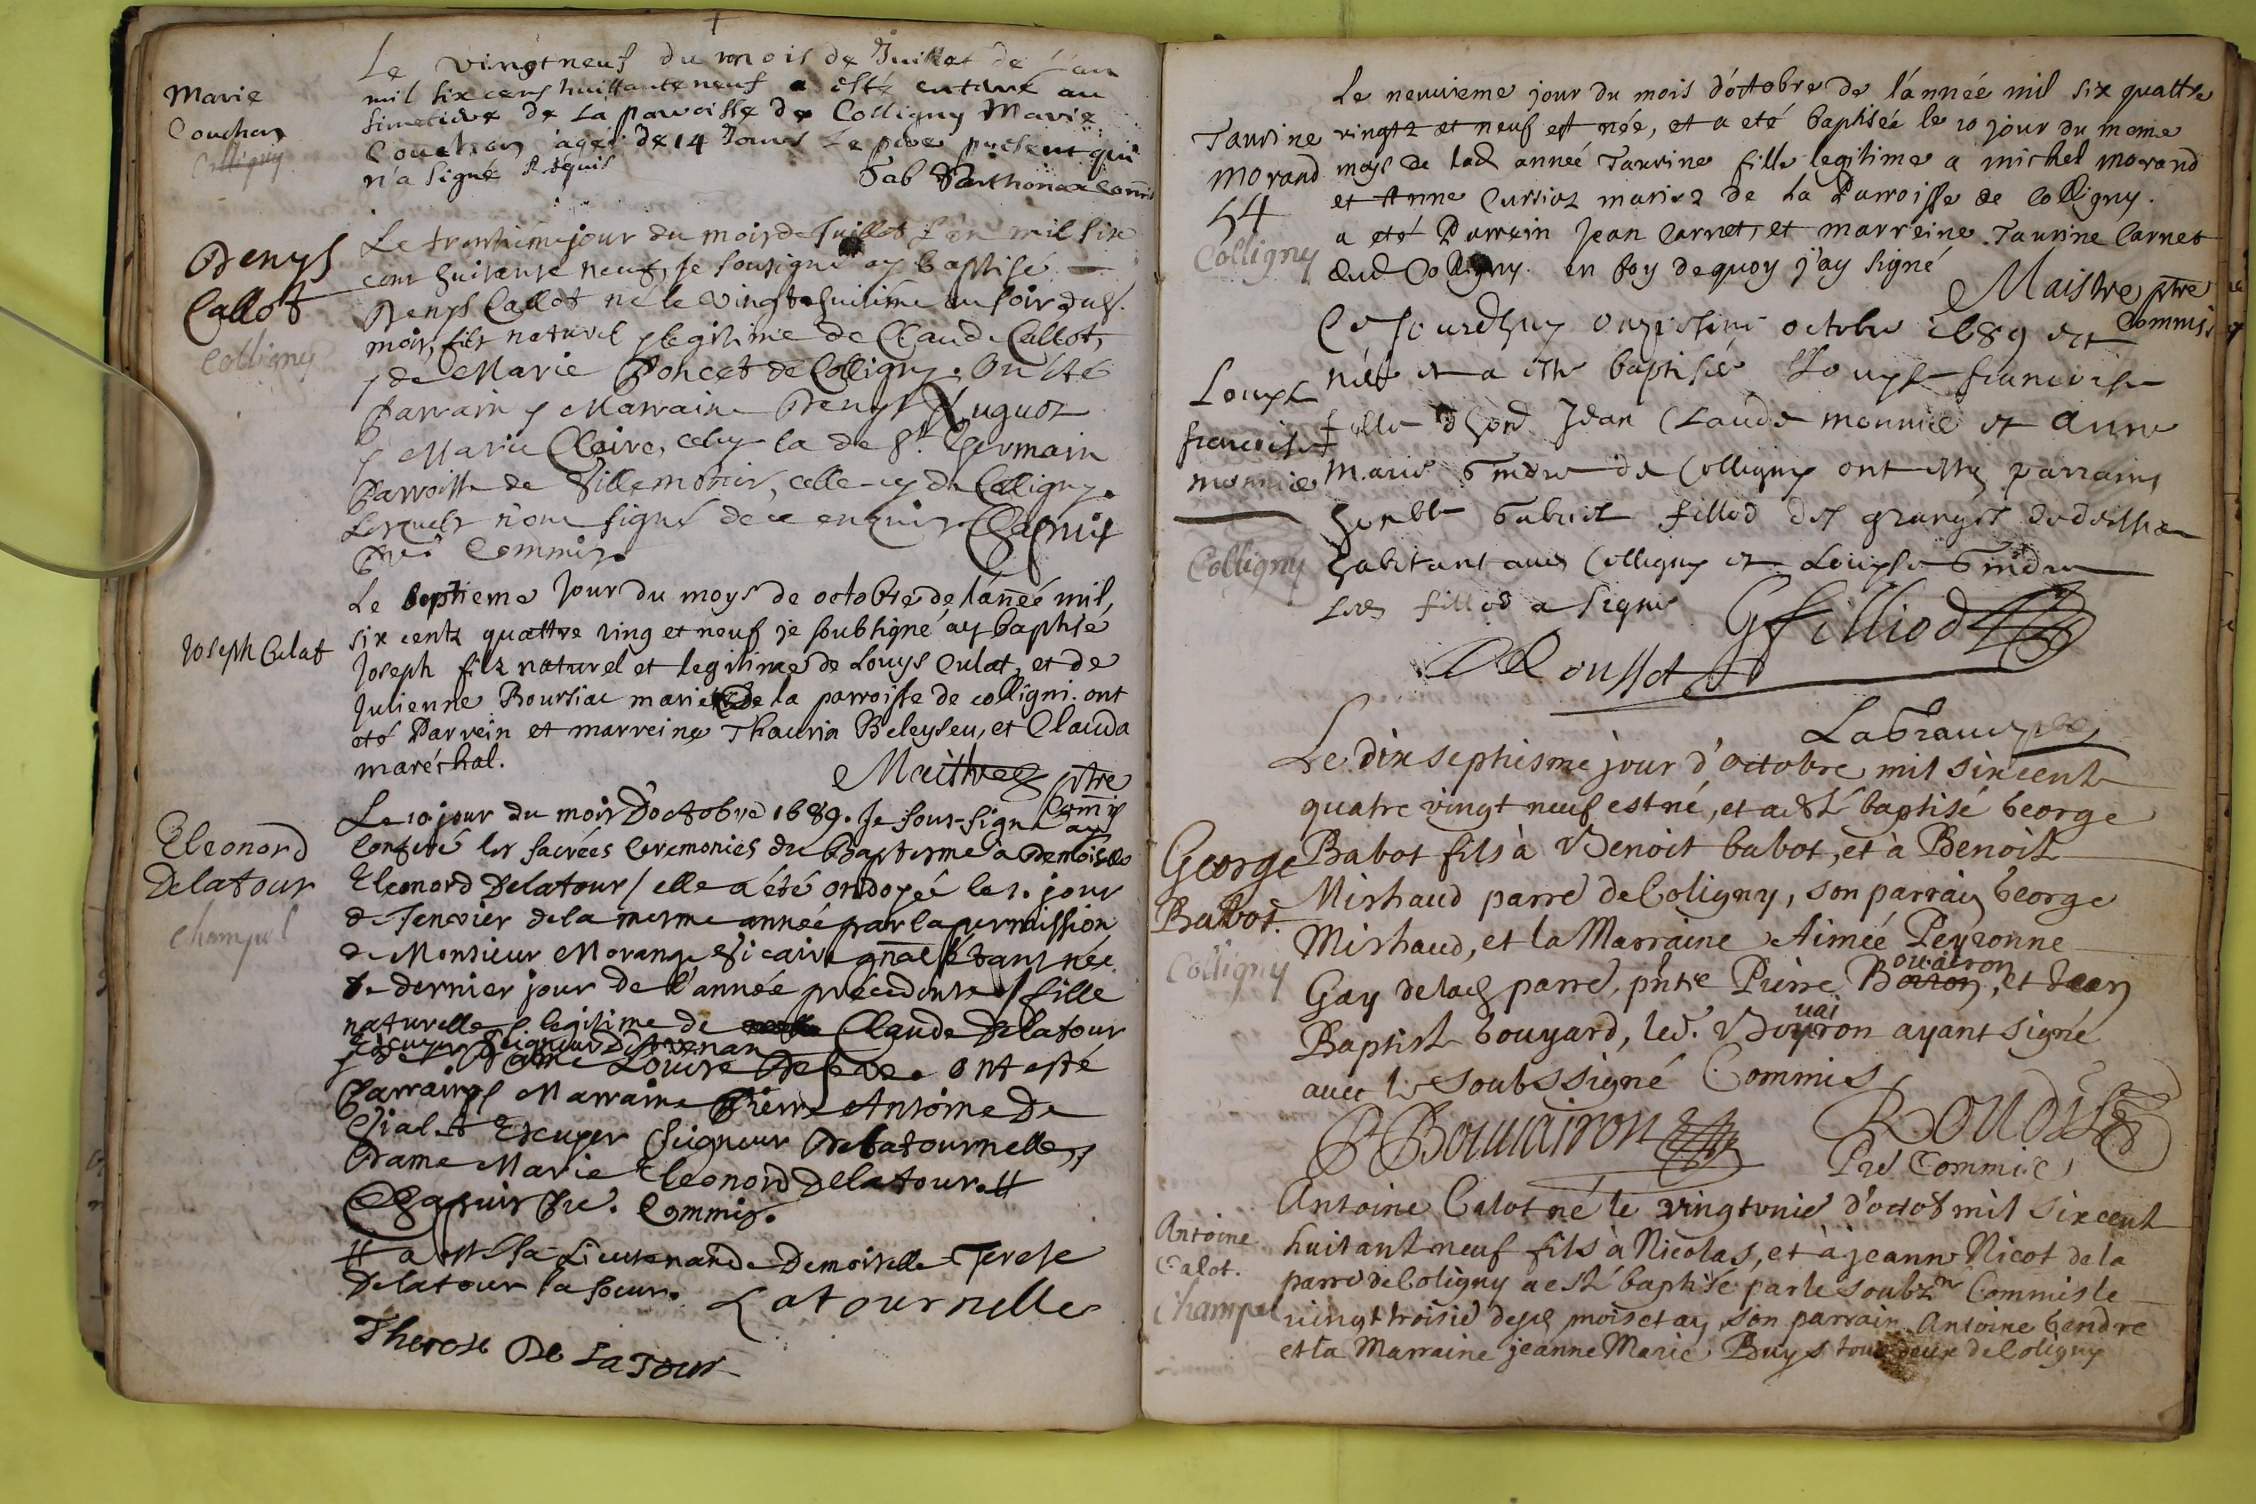 Le vingtneuf du mois de Juillet de l'an
Marie
mil six cens huittanteneuf a esté enterré au
Couchon
simetiere de la paroisse de Colligny Marie
Colligny
Couchon agée de 14 Jours Le pere present qui
n'a signé Requis
Denys
Le trentième jour du mois de Juillet l'an mil six
cent huitante neuf, Je sousigné ay baptisé
Callot
Denys Callot né le vingthuitième au soir dud.
Colligny
mois, fils naturel & legitime de Claude Callot,
& de Marie Poncet de Colligny. Ont été
Parrain & Marraine Denys Huguot
& Marie Claire, celuy la de St. Germain
Parroisse de Villemotier, celle-cy de Colligny.
Lesquels n'ont signé de ce enquis Chapuis
Pre. Commis.
Le septieme Jour du moys de octobre de l'année mil,
Joseph Culat
six centz quattre ving et neuf je soubsigné ay baptise
Joseph filz naturel et legitime de Louys Culat, et de
Julienne Boursiac mariez de la parroisse de colligni. ont
eté Parrein et marreine Thaurin Beleyseu, et Clauda
maréchal.
Maistre ptre
Commis
Le 10 jour du mois D'octobre 1689. Je sous-signé ay
Eleonord
Conferé les sacrées Ceremonies du Baptesme à Demoiselle
Delatour
Eleonord Delatour / elle a été ondoyée le 1. jour
Champel
de Jenvier de la mesme année par la permission
de Monsieur Morange Vicaire gnâl étant née
le dernier jour de l'année précédente / fille
naturelle & legitime de Claude Delatour
Escuyer Seigneur
& de Dame Louise ont esté
Parrain & Marraine Pierre Antoine De
Escuyer Seigneur Delatournelle &
Dame Marie Eleonord Delatour. #
Chapuis Pre. Commis.
# a esté sa Lieutenande Demoiselle Terese
Delatour sa soeur. Latournelle
Therese De La Tour
Le neuvieme jour du mois d'octobre de l'année mil six quattre
Taurine
vingtz et neuf est née, et a eté baptisée le 10 jour du meme
Morand
moys de lad année Taurine fille legitime a michel morand
54
et Anne Cursiat mariez de la Parroisse de Colligny.
Colligny
a eté Parrein Jean Carnet, et marreine Taurine Carnet
dud Colligny. en foy dequoy j'ay signé
Maistre ptre
Commis
Ce jourdhuy onziesme octobre 1689 est
Louyse
née et a esté baptisée Louyse francoise
francoise
fille d'hon. Jean Claude monnier et Anne
monnier
Marie de Colligny ont esté parrains
Colligny
habitant aud Colligny et Louyse
Led fillod a signé
G filliod
DRoussot
Le dix septiesme jour d'octobre mil six cent
quatre vingt neuf est né, et a esté baptisé George
George
Babot fils à Benoit babot, et à Benoite
Babot.
Mishaud parre de Coligny, son parrain George
Colligny
Mishaud, et la Marraine Aimée Peyronne
Gay de lad parre, pnte Pierre Bouvairon, et Jean
Baptiste bouyard, led. Bouvairon ayant signé
avec le soubssigné Commis
P Bouvairon
Pre Commis
Antoine
Antoine Calot né le vingtunie d'octob mil six cent
Calot.
huitant neuf fils à Nicolas, et à jeanne Nicot de la
Champel
parre de Coligny a esté baptisé par le soubz.né Commis le
vingt troisie desd mois et an, son parrain Antoine Gendre
et la Marraine jeanne Marie Buys tous deux de Coligny